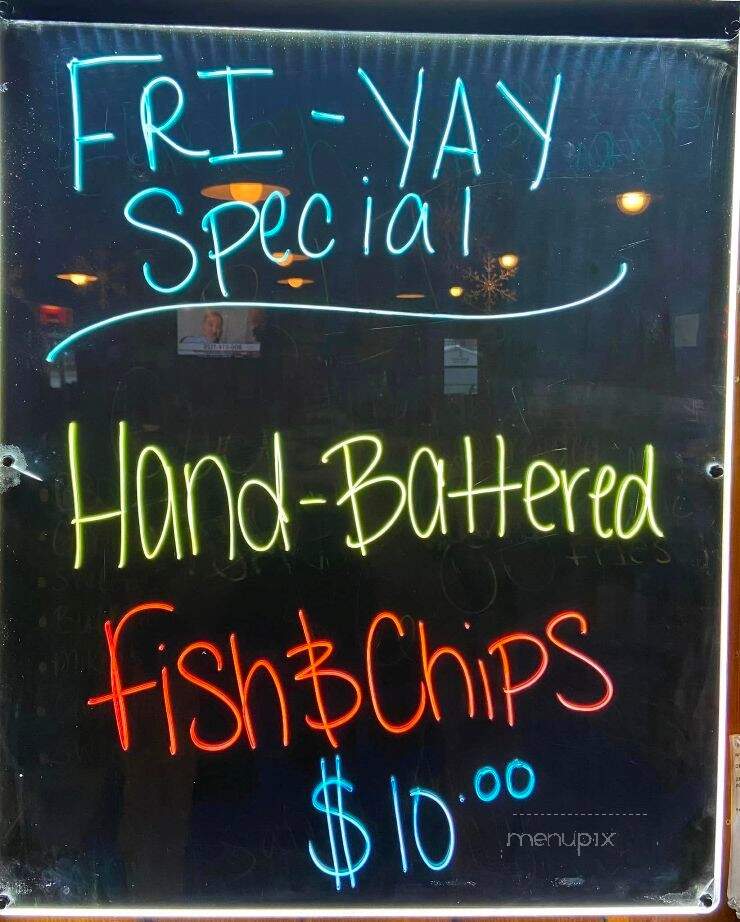 FRI-YAY
Special
Hand-Battered
Fish & Chips
$10.00
menupix